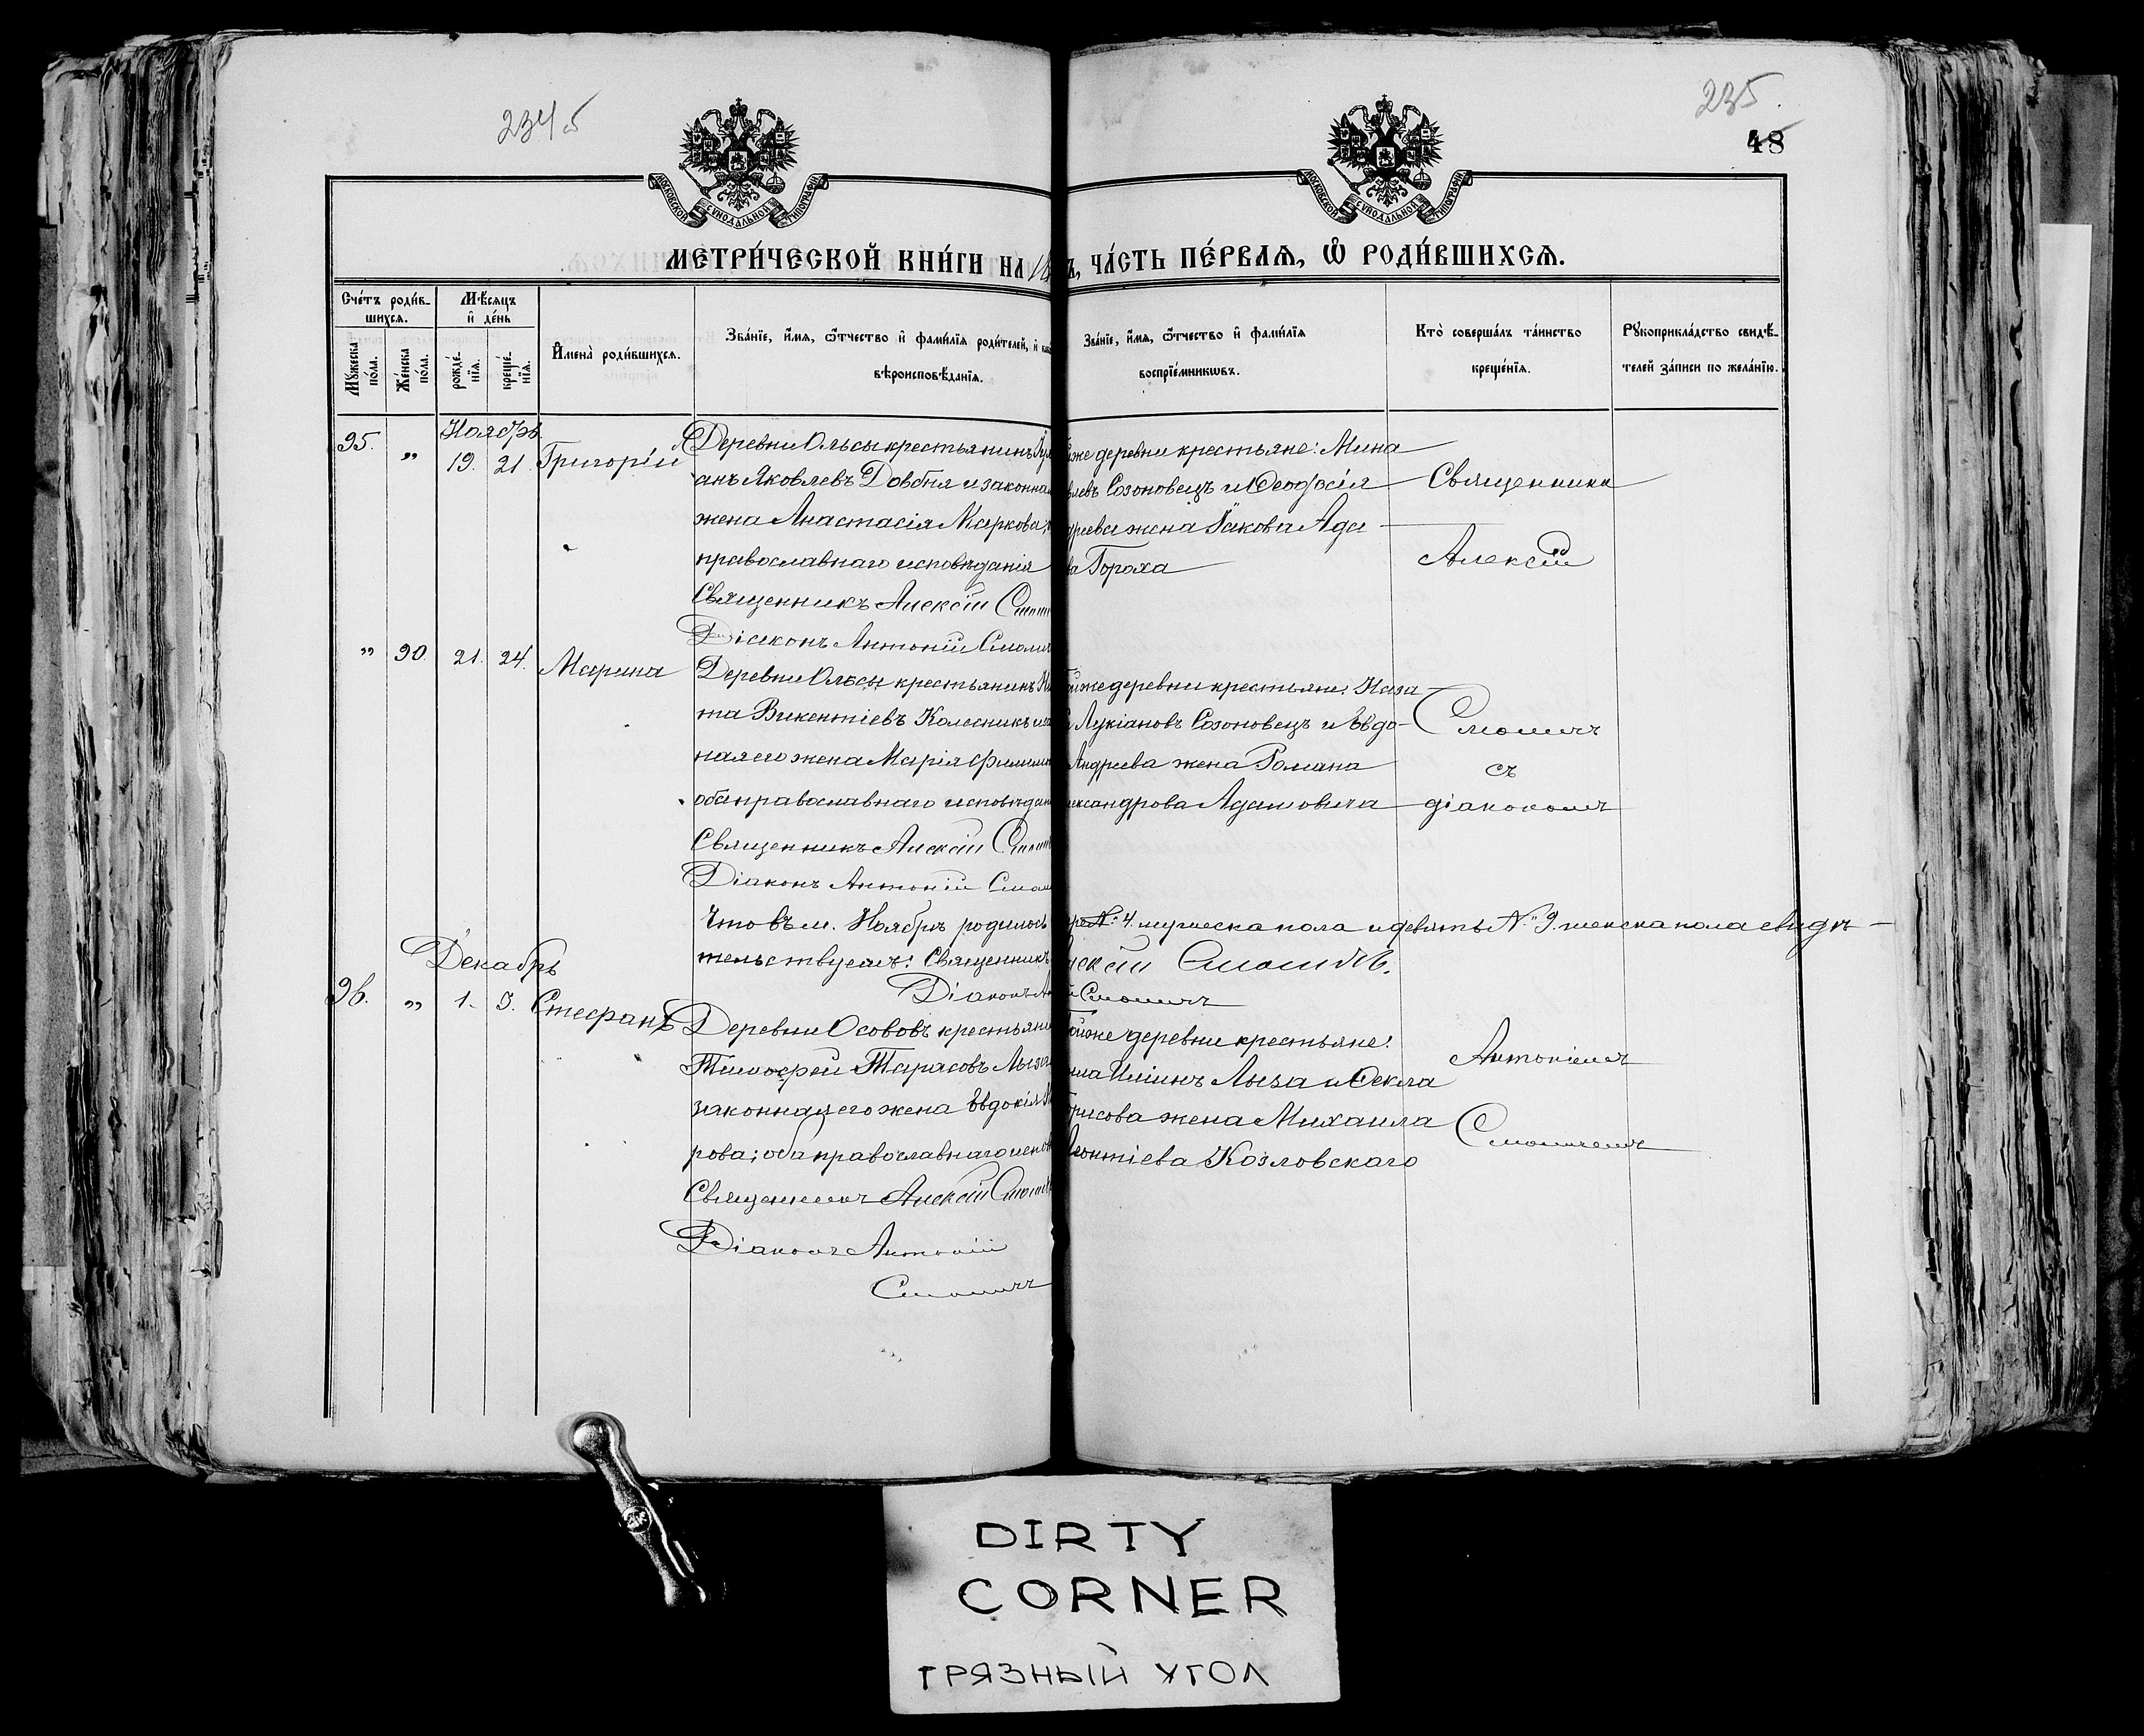 234 об
235.
48
МОСКОВСКОЙ СѴНОДАЛЬНОЙ ТИПОГРАФІИ
МОСКОВСКОЙ СѴНОДАЛЬНОЙ ТИПОГРАФІИ
МЕТРИ́ЧЕСКОЙ КНИ́ГИ НА 18
Ъ, ЧА́СТЬ ПЕ́РВАѦ, Ѿ РОДИ́ВШИХСѦ.
Сче́тъ роди́в-
шихсѧ.
Мѣ́сѧцъ
и҆ де́нь
Мꙋ́жеска по́ла.
Же́нска по́ла.
рожде́-нїѧ.
креще́-нїѧ.
И҆мена̀ роди́вшихсѧ.
Зва́нїе, и҆́мѧ, ѻ҆́тчество и҆ фами́лїѧ роди́телей, и҆
вѣроисповѣ́данїѧ.
Зва́нїе, и҆́мѧ, ѻ҆́тчество и҆ фами́лїѧ
воспрїе́мникѡвъ.
Кто̀ соверша́лъ та́инство
креще́нїѧ.
Рꙋкоприкла́дство свидѣ́-
телей за́писи по жела́нїю.
Ноябрь
95. " 19. 21. Григорій
Деревни Ольсы крестьянинъ
анъ Яковлевъ Довбня и законна
жена Анастасія Маркова
православнаго исповѣданія
Священникъ Алексій
Діаконъ Антоній Смолич
же деревни крестьяне: Мина
влевъ Созоновецъ и Ѳеодосія
дреева жена Іакова Ада
ва Гороха
Священники
Алексій
" 90. 21. 24. Марина
Деревни Ольсы крестьянинъ
та Викентіевъ Колесникъ и за
ная его жена Марія Филимон
оба православнаго исповѣдан
Священникъ Алексій
Діаконъ Антоній Смол
ойже деревни крестьяне: Наза
Лукіановъ Созоновецъ и Евдо-
Андреева жена Романа
лександрова Адамовича
Смоличъ
съ
діакономъ
Что въ м. Ноябрѣ родилось
ре № 4 мужеска пола и девять № 9. женска пола свидѣ-
тельствуемъ: Священникъ
лексій Смоличъ.
Діаконъ Ан
й Смоличъ
Декабрь
96. " 1. 3. Стефанъ
Деревни Осововъ крестьяни
Тимофей Тарасовъ Лыза
законная его жена Евдокія
рова; оба православнаго испов
Священникъ Алексій Смолич
Діаконъ Антоній
Смоличъ
ойже деревни крестьяне:
Иліинъ Лыза и Ѳекла
Борисова жена Михаила
Леонтіева Козловскаго
Антоніемъ
Смоличемъ
DIRTY
CORNER
ГРЯЗНЫЙ УГОЛ